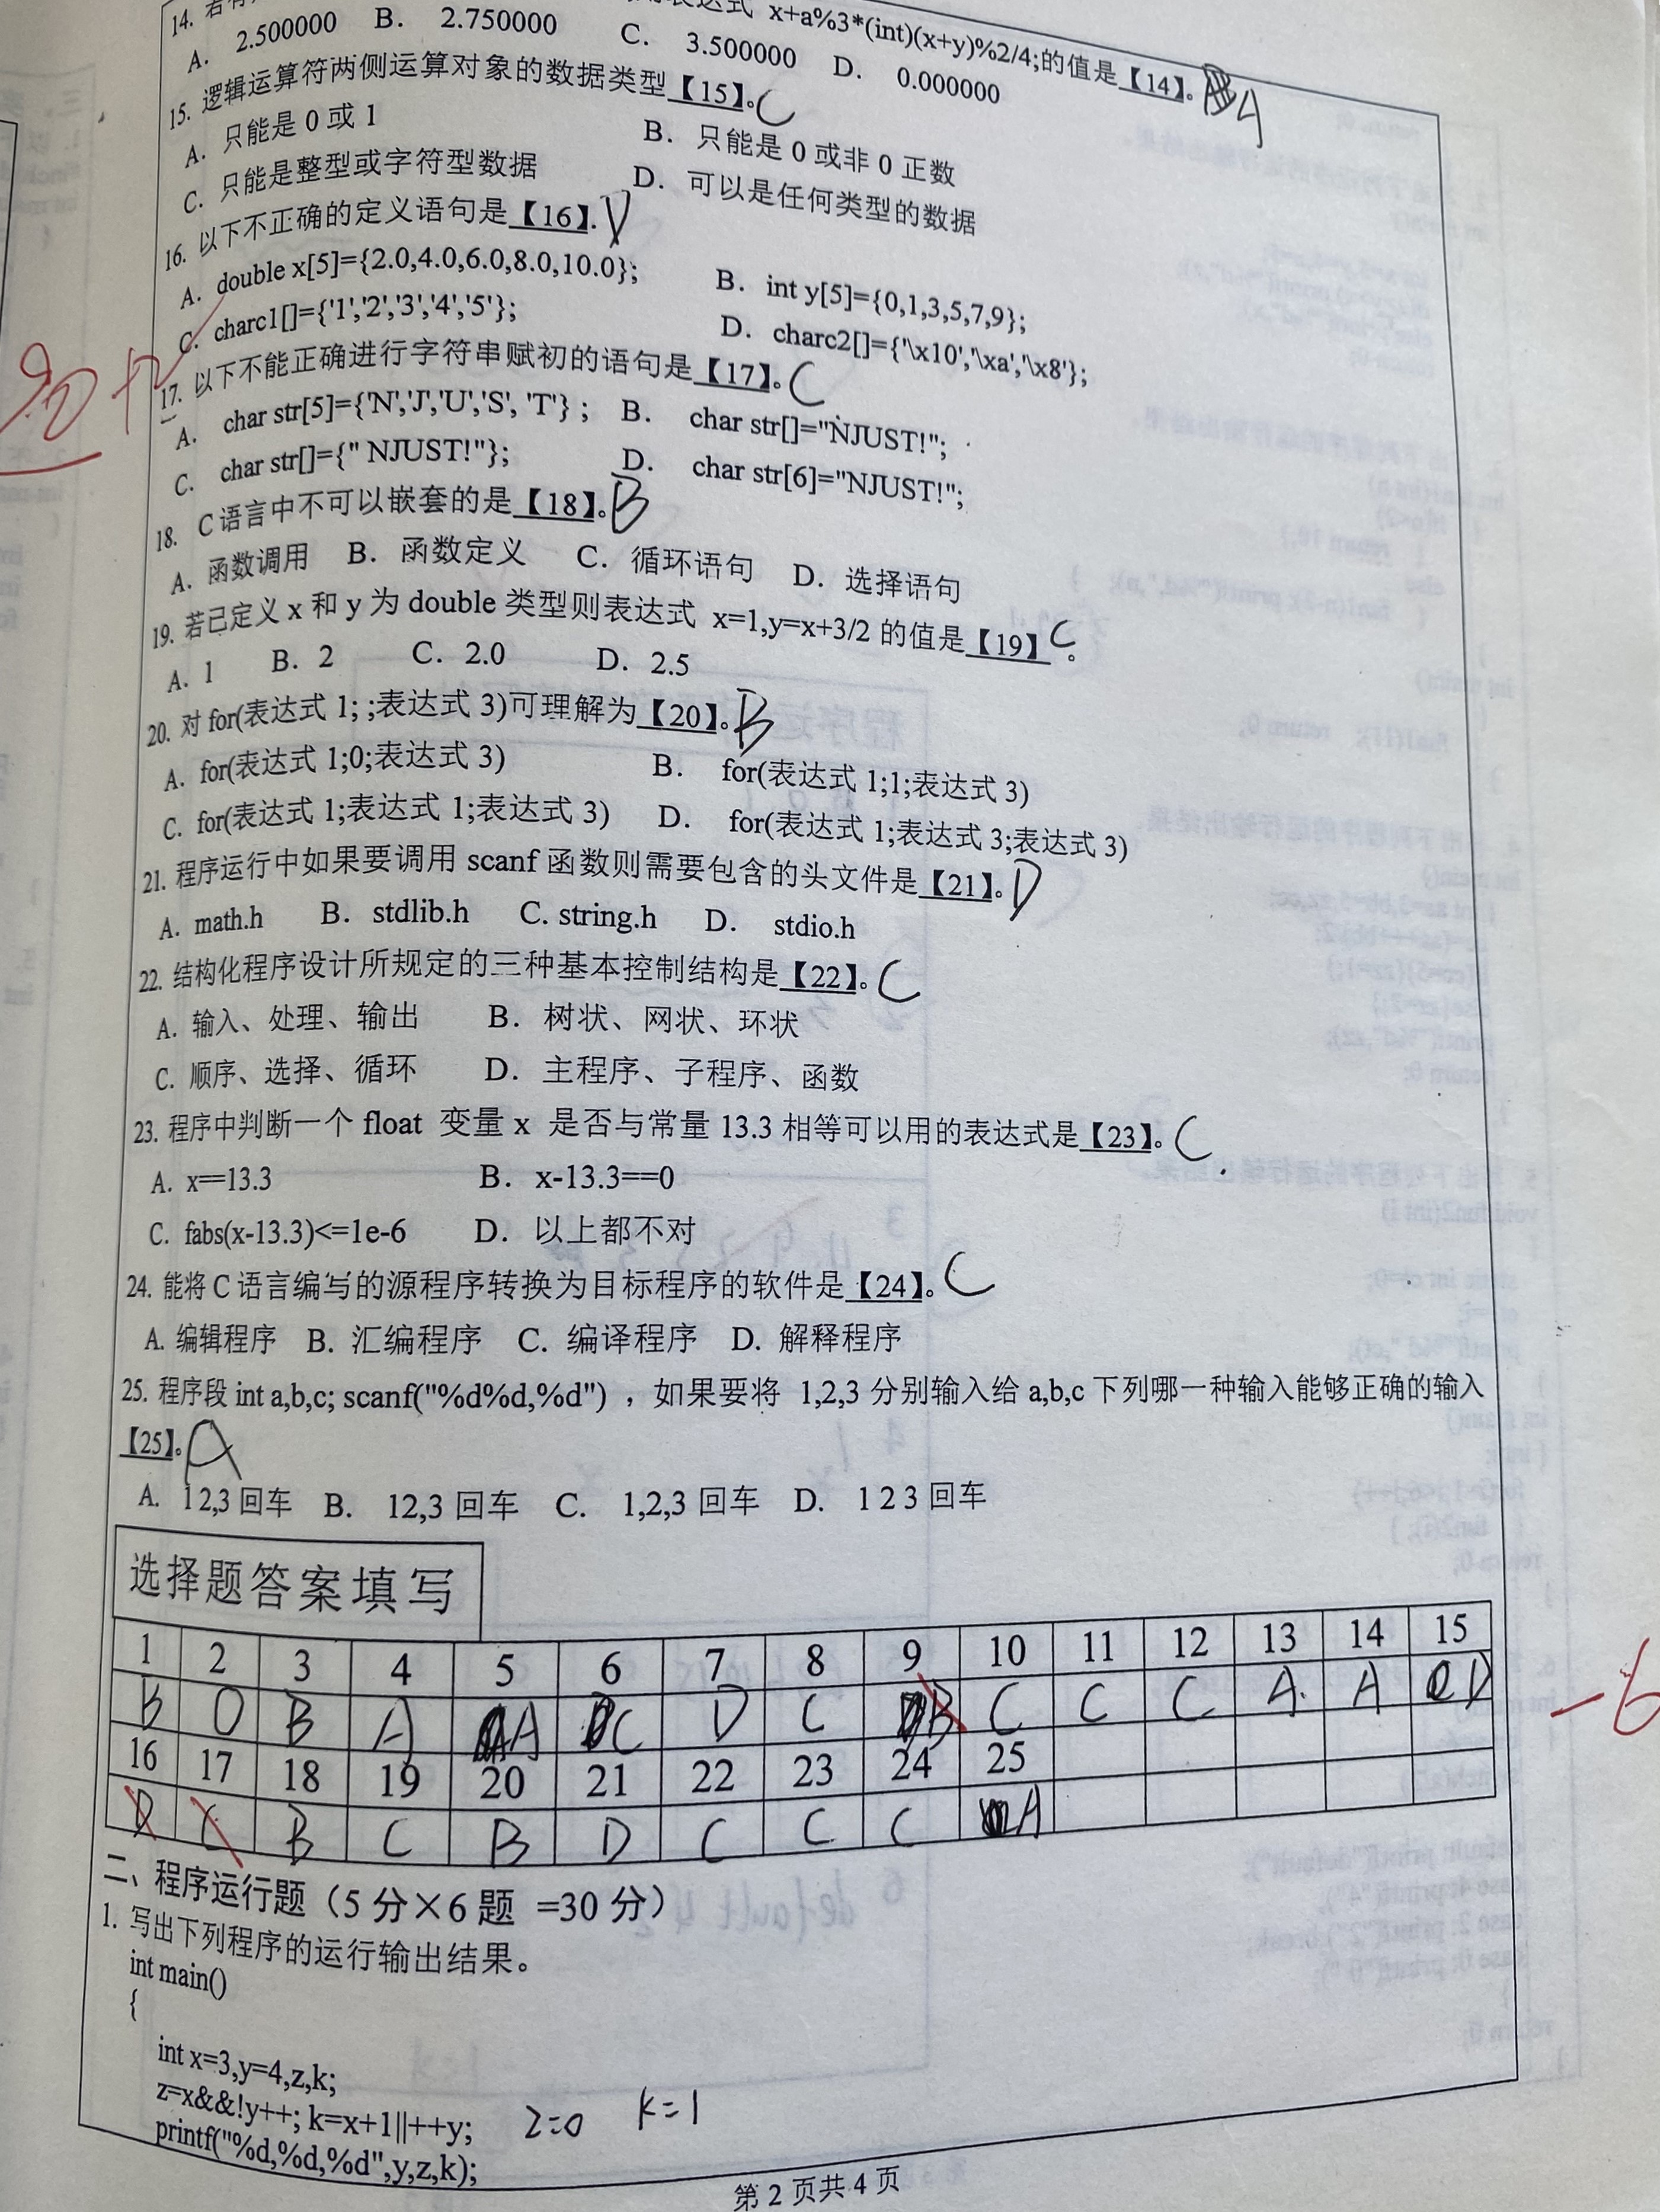 14. 若
表达式 x+a%3*(int)(x+y)%2/4;的值是【14】。A
A. 2.500000 B. 2.750000 C. 3.500000 D. 0.000000
15. 逻辑运算符两侧运算对象的数据类型【15】。C
A. 只能是 0 或 1 B. 只能是 0 或非 0 正数
C. 只能是整型或字符型数据 D. 可以是任何类型的数据
16. 以下不正确的定义语句是【16】. D
A. double x[5]={2.0,4.0,6.0,8.0,10.0}; B. int y[5]={0,1,3,5,7,9};
C. charc1[]={'1','2','3','4','5'}; D. charc2[]={'\x10','\xa','\x8'};
17. 以下不能正确进行字符串赋初的语句是【17】。C
A. char str[5]={'N','J','U','S', 'T'} ; B. char str[]="NJUST!";
C. char str[]={" NJUST!"}; D. char str[6]="NJUST!";
18. C 语言中不可以嵌套的是【18】。B
A. 函数调用 B. 函数定义 C. 循环语句 D. 选择语句
19. 若已定义 x 和 y 为 double 类型则表达式 x=1,y=x+3/2 的值是【19】C。
A. 1 B. 2 C. 2.0 D. 2.5
20. 对 for(表达式 1; ;表达式 3)可理解为【20】。B
A. for(表达式 1;0;表达式 3) B. for(表达式 1;1;表达式 3)
C. for(表达式 1;表达式 1;表达式 3) D. for(表达式 1;表达式 3;表达式 3)
21. 程序运行中如果要调用 scanf 函数则需要包含的头文件是【21】。D
A. math.h B. stdlib.h C. string.h D. stdio.h
22. 结构化程序设计所规定的三种基本控制结构是【22】。C
A. 输入、处理、输出 B. 树状、网状、环状
C. 顺序、选择、循环 D. 主程序、子程序、函数
23. 程序中判断一个 float 变量 x 是否与常量 13.3 相等可以用的表达式是【23】。C
A. x==13.3 B. x-13.3==0
C. fabs(x-13.3)<=1e-6 D. 以上都不对
24. 能将 C 语言编写的源程序转换为目标程序的软件是【24】。C
A. 编辑程序 B. 汇编程序 C. 编译程序 D. 解释程序
25. 程序段 int a,b,c; scanf("%d%d,%d") ，如果要将 1,2,3 分别输入给 a,b,c 下列哪一种输入能够正确的输入
【25】。A
A. 1 2,3 回车 B. 12,3 回车 C. 1,2,3 回车 D. 1 2 3 回车
选择题答案填写
1 2 3 4 5 6 7 8 9 10 11 12 13 14 15
B D B A A C D C B C C C A A D
-6
16 17 18 19 20 21 22 23 24 25
D C B C B D C C C A
二、程序运行题（5 分×6 题 =30 分）
1. 写出下列程序的运行输出结果。
int main()
{
int x=3,y=4,z,k;
z=x&&!y++; k=x+1||++y; z=0 k=1
printf("%d,%d,%d",y,z,k);
第 2 页共 4 页